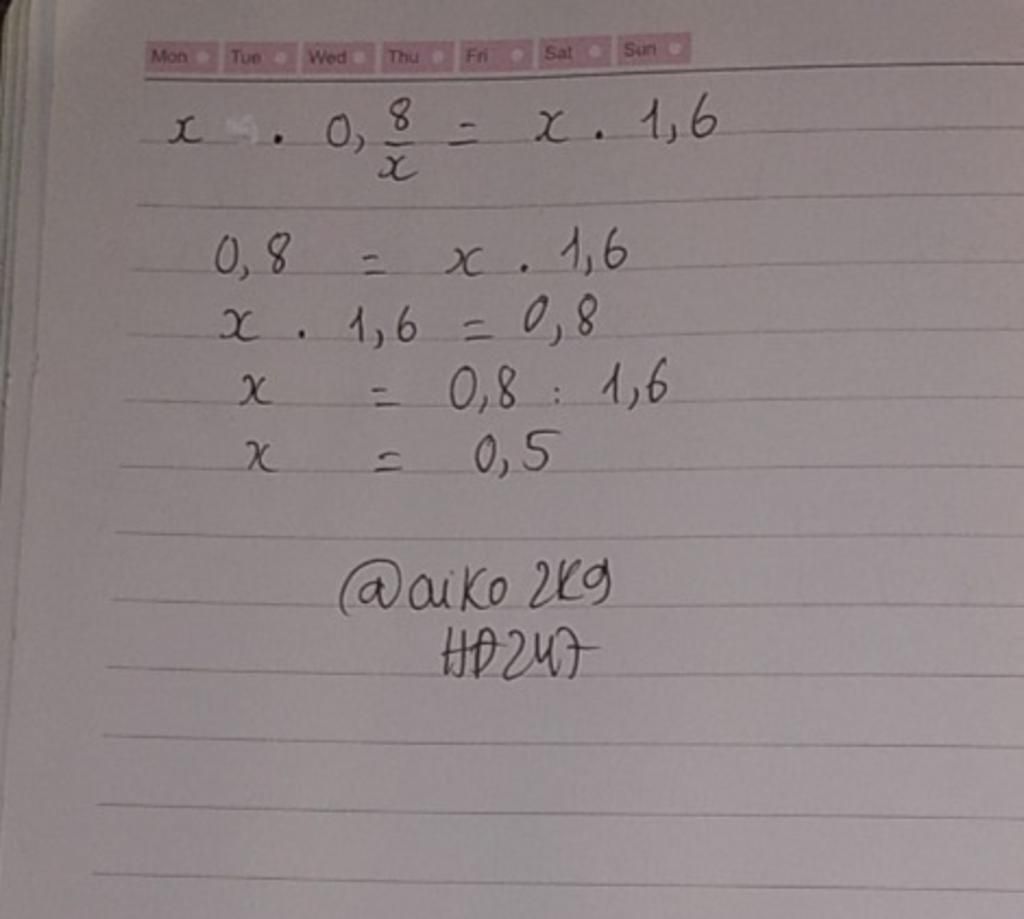 Mon Tue Wed Thu Fri Sat Sun
x . 0,8/x = x . 1,6
0,8 = x . 1,6
x . 1,6 = 0,8
x = 0,8 : 1,6
x = 0,5
@aiko 2k9
HĐ247